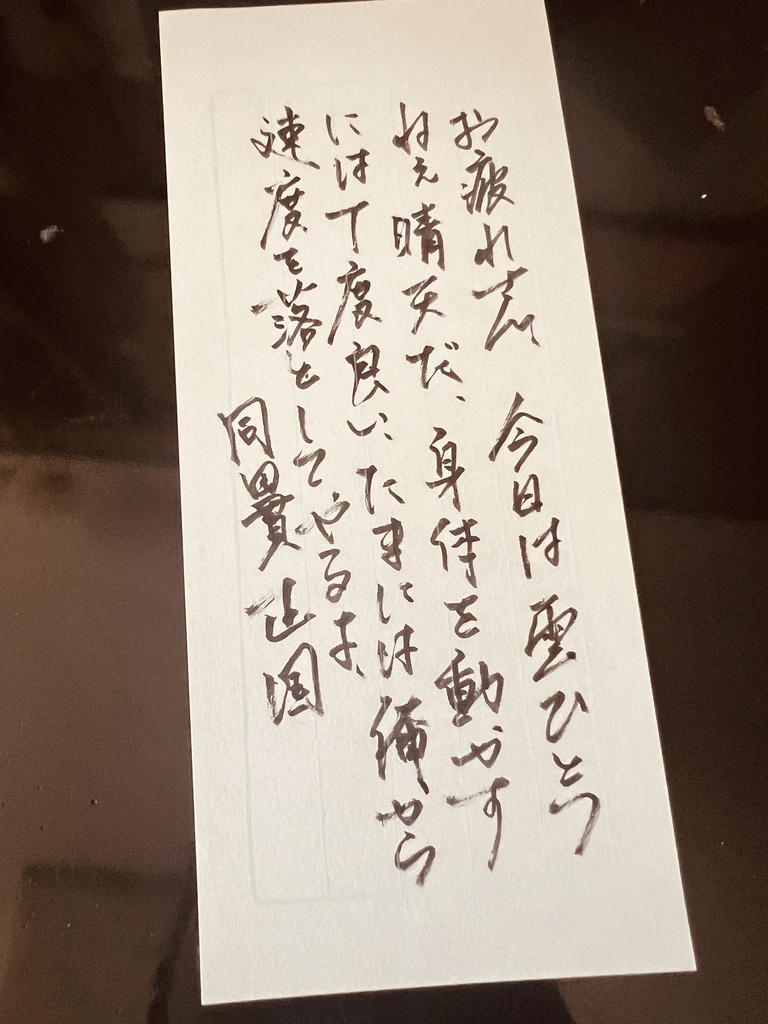 お疲れさん 今日は雲ひとつ
ねぇ晴天だ、身体を動かす
には丁度良い、たまには俺から
速度を落としてやるよ、
同田貫正国